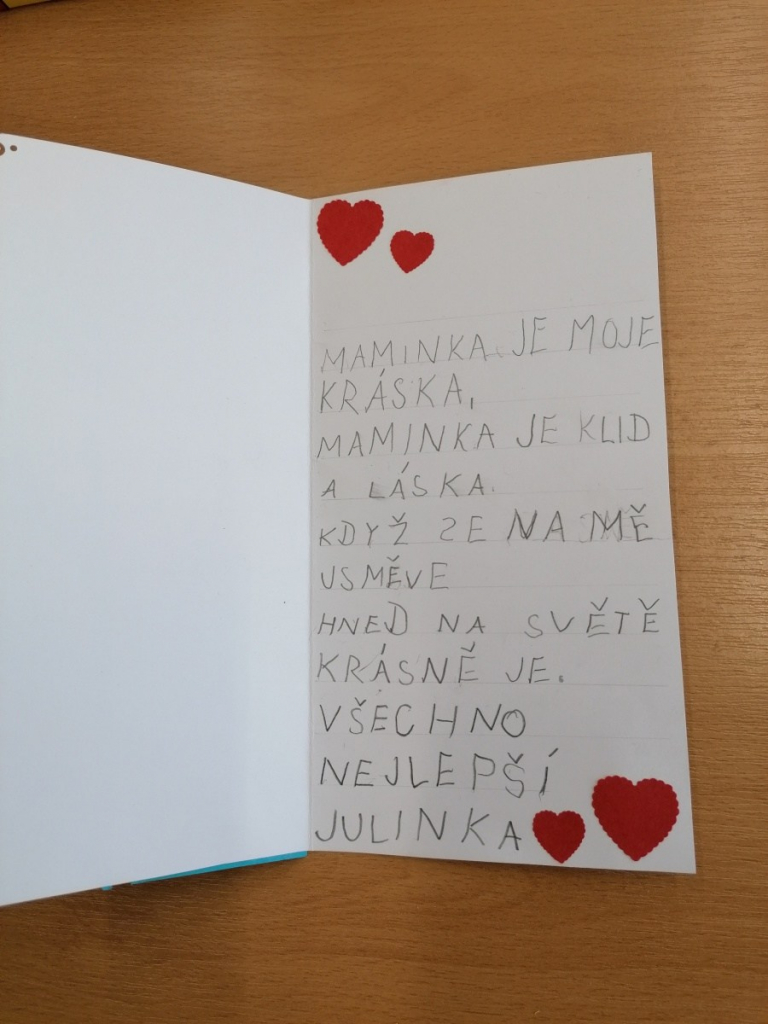 MAMINKA JE MOJE
KRÁSKA,
MAMINKA JE KLID
A LÁSKA.
KDYŽ SE NA MĚ
USMĚVE
HNED NA SVĚTĚ
KRÁSNĚ JE.
VŠECHNO
NEJLEPŠÍ
JULINKA